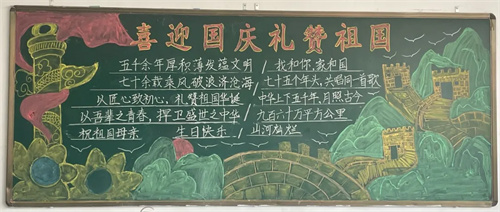 喜迎国庆礼赞祖国
五千余年厚积薄发蕴文明
七十余载乘风破浪济沧海
以匠心致初心，礼赞祖国华诞
以吾辈之青春，捍卫盛世之中华
祝祖国母亲 生日快乐
我和你，家和国
七十五个年头，共唱同一首歌
中华上下五千年，月照古今
九百六十万平方公里
山河灿烂